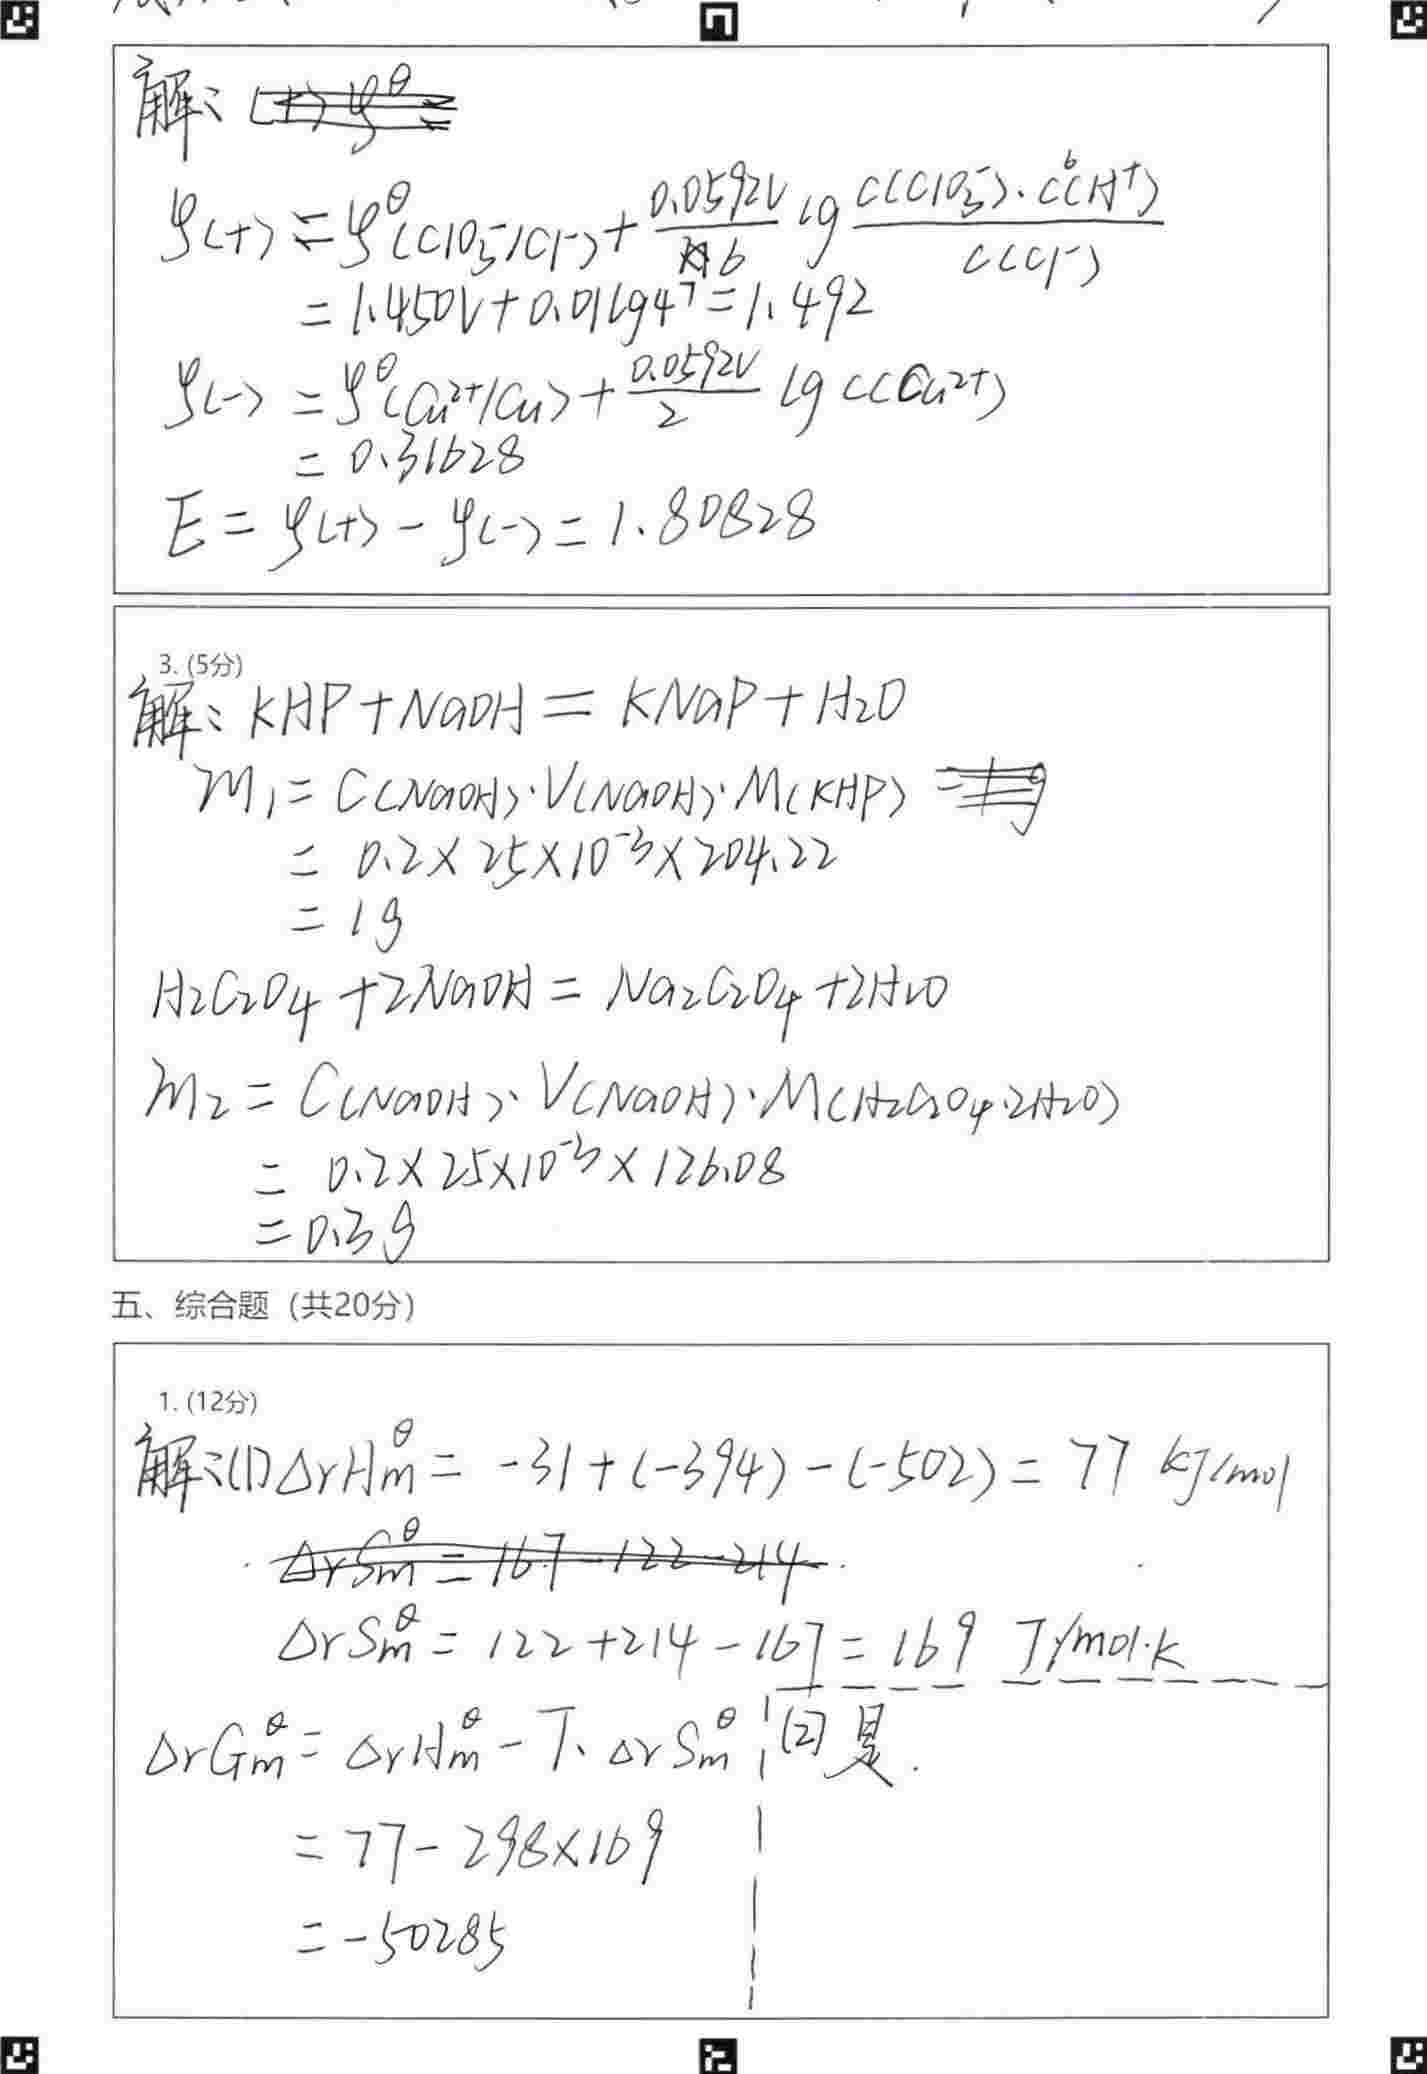 解：
φ(+) = φ^θ(ClO₃⁻/Cl⁻) + 0.0592V/6 lg c(ClO₃⁻)·c⁶(H⁺)/c(Cl⁻)
= 1.450V + 0.01lg4⁷ = 1.492
φ(-) = φ^θ(Cu²⁺/Cu) + 0.0592V/2 lg c(Cu²⁺)
= 0.31628
E = φ(+) - φ(-) = 1.80828
3. (5分)
解：KHP + NaOH = KNaP + H₂O
m₁ = C(NaOH)·V(NaOH)·M(KHP)
= 0.2×25×10⁻³×204.22
= 1g
H₂C₂O₄ + 2NaOH = Na₂C₂O₄ + 2H₂O
m₂ = C(NaOH)·V(NaOH)·M(H₂C₂O₄·2H₂O)
= 0.2×25×10⁻³×126.08
= 0.3g
五、综合题（共20分）
1. (12分)
解：(1) ΔrHm^θ = -31+(-394)-(-502) = 77 kJ/mol
ΔrSm^θ = 167-122-214
ΔrSm^θ = 122+214-167 = 169 J/mol·K
ΔrGm^θ = ΔrHm^θ - T·ΔrSm^θ
= 77-298×169
= -50285
(2)